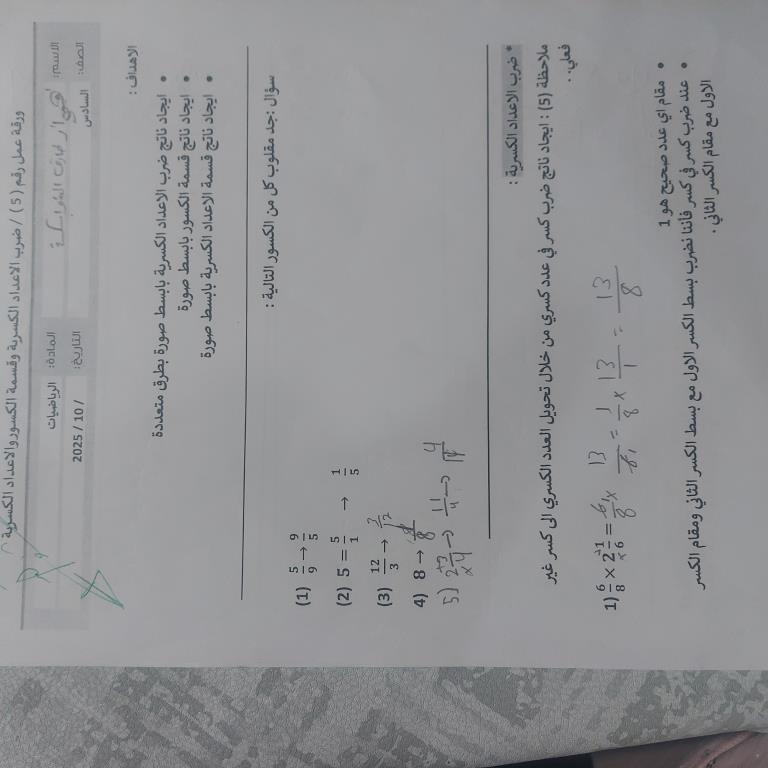 ورقة عمل رقم ( 5 ) / ضرب الاعداد الكسرية وقسمة الكسور والاعداد الكسرية
الاسم: المادة: الرياضيات
الصف: السادس التاريخ: / 10 / 2025
الاهداف :
• ايجاد ناتج ضرب الاعداد الكسرية بابسط صورة بطرق متعددة
• ايجاد ناتج قسمة الكسور بابسط صورة
• ايجاد ناتج قسمة الاعداد الكسرية بابسط صورة
سؤال :جد مقلوب كل من الكسور التالية :
(1) 5/9 → 9/5
(2) 5 = 5/1 → 1/5
(3) 12/3 → 3/12
4) 8 → 1/8
5) 2 3/4 → 11/4 → 4/11
* ضرب الاعداد الكسرية :
ملاحظة (5) : ايجاد ناتج ضرب كسر في عدد كسري من خلال تحويل العدد الكسري الى كسر غير
فعلي .
1) 6/8 × 2 1/6 = 6/8 × 13/6 = 1/8 × 13/1 = 13/8
• مقام اي عدد صحيح هو 1
• عند ضرب كسر في كسر فاننا نضرب بسط الكسر الاول مع بسط الكسر الثاني ومقام الكسر
الاول مع مقام الكسر الثاني .